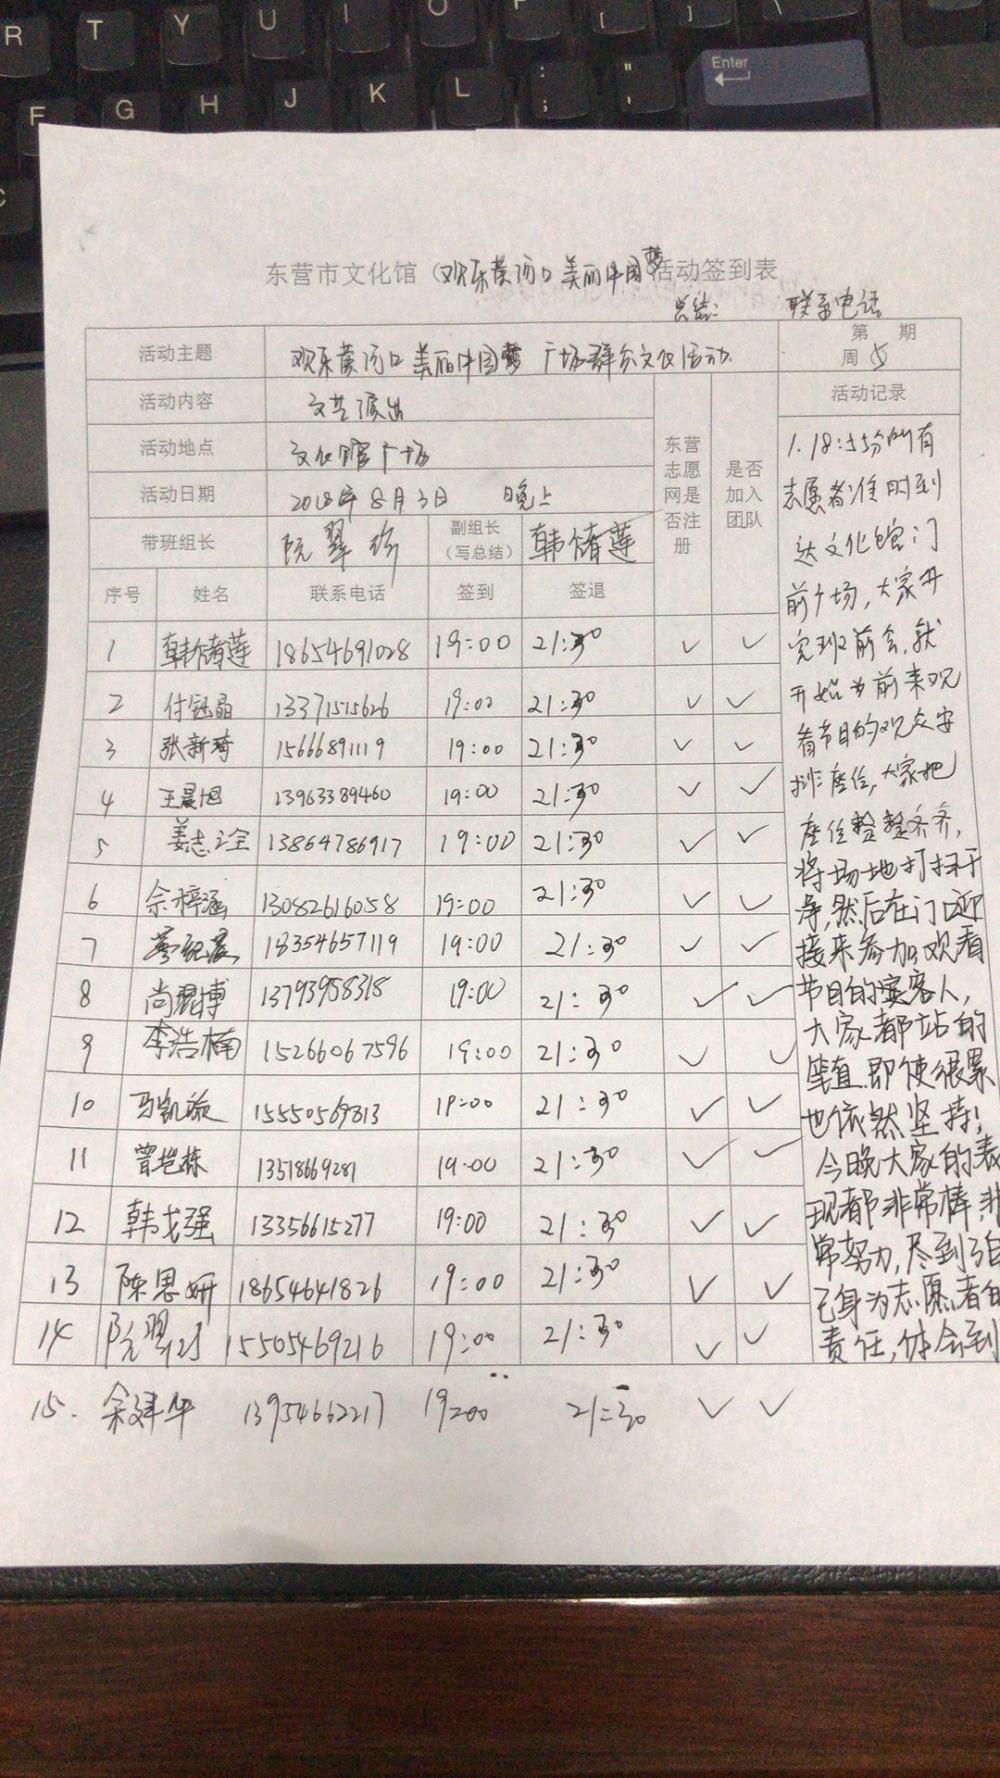 R T Y U I O P [ ] \
F G H J K L : ; " ' Enter
C
东营市文化馆（欢乐黄河口 美丽中国梦活动签到表
总结： 联系电话
活动主题 欢乐黄河口 美丽中国梦 广场群众文化活动. 第 期
周 5
活动内容 文艺演出 活动记录
活动地点 文化馆广场
活动日期 2018年8月3日 晚上
带班组长 阮翠 副组长（写总结） 韩倩莲
东营志愿网是否注册 是否加入团队
序号 姓名 联系电话 签到 签退
1 韩倩莲 18654691028 19:00 21:30 ✓ ✓
2 付钰晶 13371515626 19:00 21:30 ✓ ✓
3 张新琦 15666891119 19:00 21:30 ✓ ✓
4 王晨旭 13963389460 19:00 21:30 ✓ ✓
5 姜志 13864786917 19:00 21:30 ✓ ✓
6 余梓涵 13082616058 19:00 21:30 ✓ ✓
7 18354657119 19:00 21:30 ✓ ✓
8 尚琨博 13793958318 19:00 21:30 ✓ ✓
9 李浩楠 15266067596 19:00 21:30 ✓ ✓
10 马凯璇 15550569813 19:00 21:30 ✓ ✓
11 曾栋 13518669281 19:00 21:30 ✓ ✓
12 韩戈强 13356615277 19:00 21:30 ✓ ✓
13 陈思妍 18654641826 19:00 21:30 ✓ ✓
14 阮翠 15505469216 19:00 21:30 ✓ ✓
15. 余建华 13954662217 19:00 21:30 ✓ ✓
1. 18:55分所有
志愿者准时到
达文化馆门
前广场，大家开
完班前会，就
开始为前来观
看节目的观众安
排座位，大家把
座位整整齐齐，
将场地打扫干
净，然后在门口迎
接来参加观看
节目的宾客人，
大家都站的
笔直，即使很累
也依然坚持！
今晚大家的表
现都非常棒，非
常努力，尽到了自
己身为志愿者的
责任，体会到